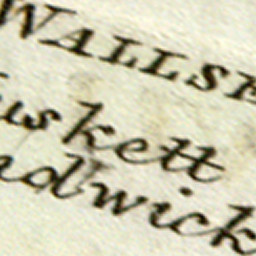 WALLSE
uskett
adwick